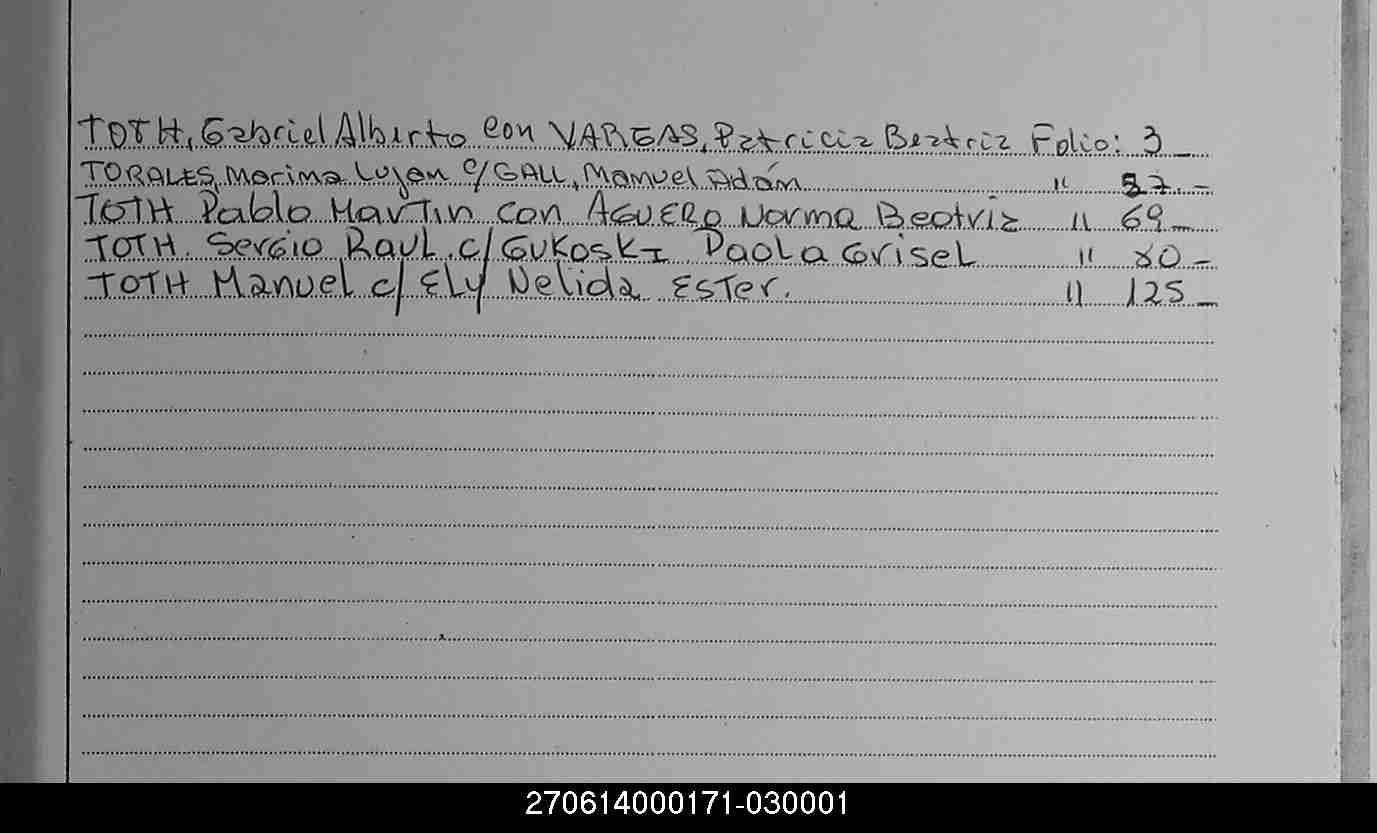 TOTH, Gabriel Alberto con VARGAS, Patricia Beatriz Folio: 3 _
TORALES, Marina Lujan c/ GALL, Manuel Adán " 57 -
TOTH Pablo Martin con AGUERO Norma Beatriz " 69 _
TOTH. Sergio Raul. c/ GUKOSKI Paola Grisel " 80 -
TOTH Manuel c/ ELY Nelida Ester. " 125 _
270614000171-030001